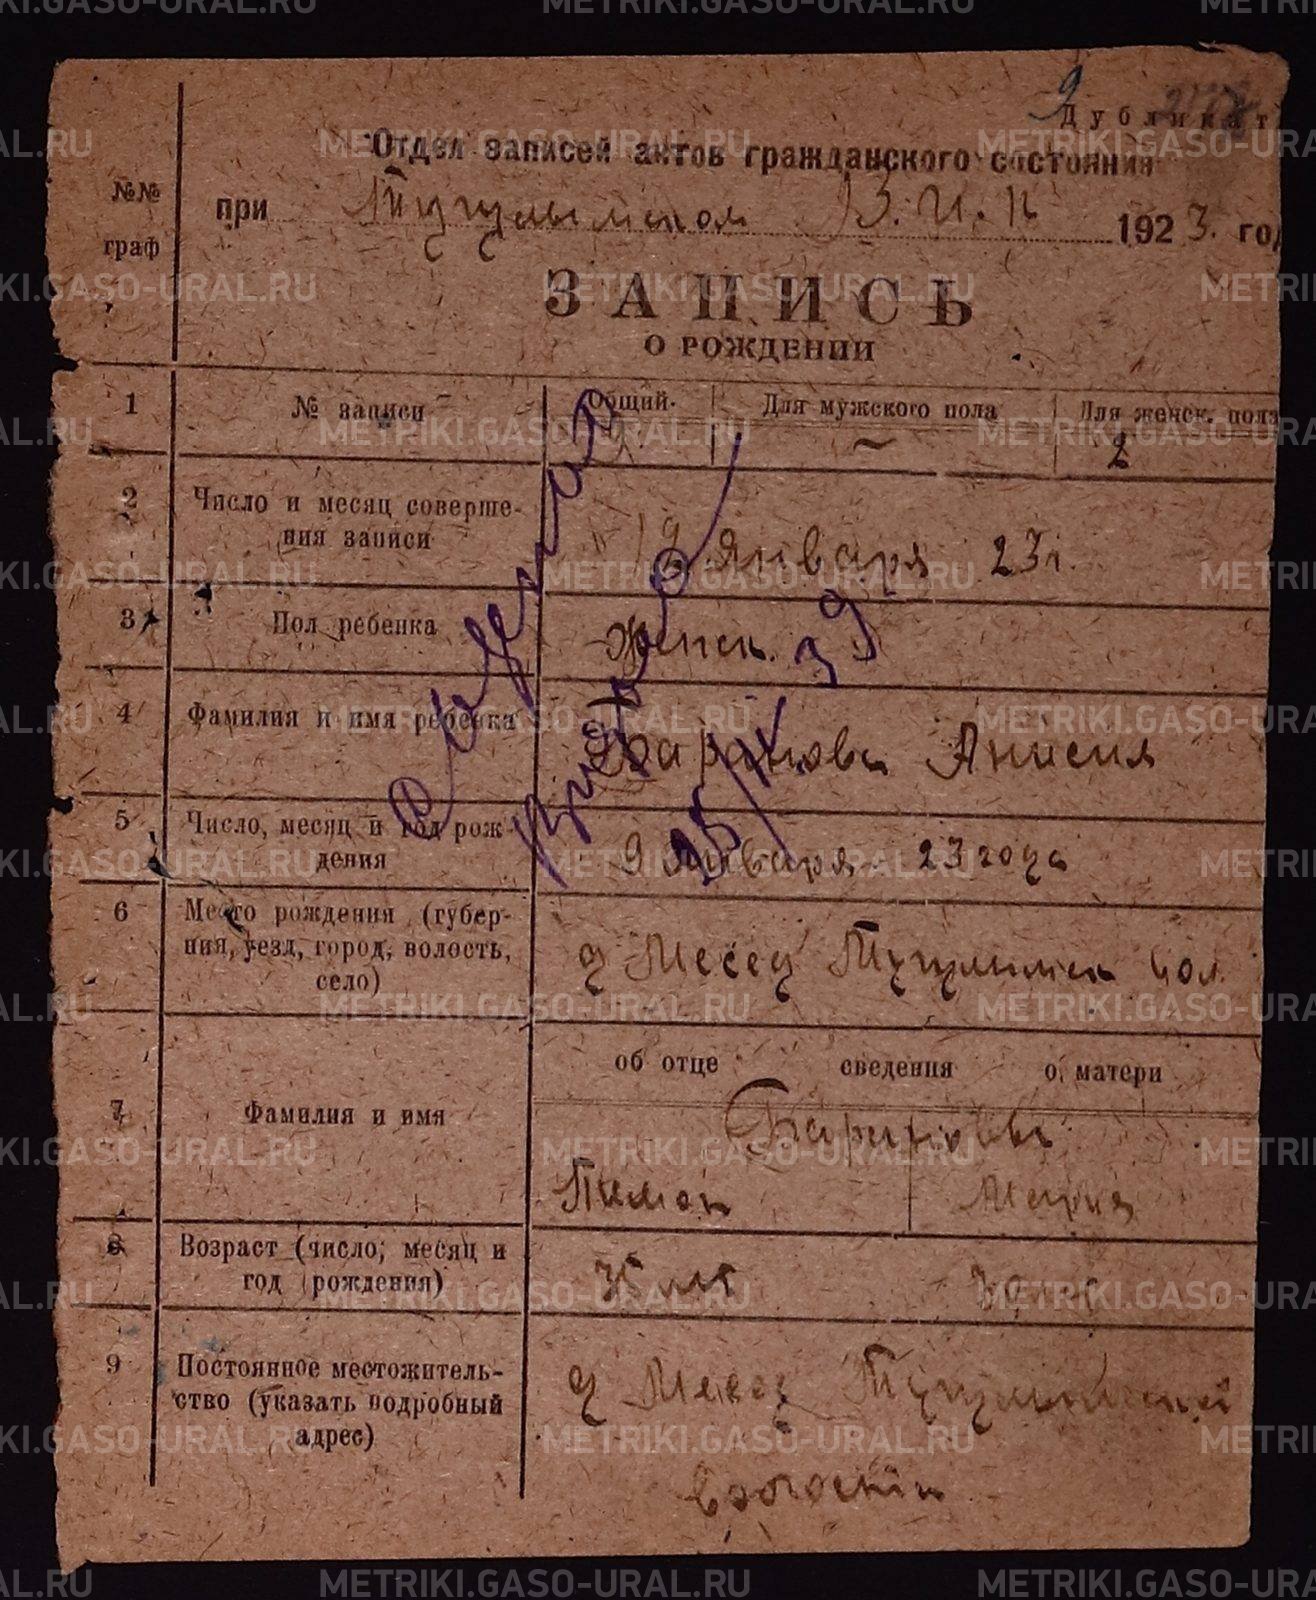 Дубликат
Отдел записей актов гражданского состояния
№№ граф
при Тугулымском В.И.К 1923. год
ЗАПИСЬ
О РОЖДЕНИИ
1 № записи Общий. Для мужского пола Для женск. пола
~ 2
2 Число и месяц соверше-
ния записи
Января 23г.
3 Пол ребенка Женск.
4 Фамилия и имя ребенка Баранова Анисия
5 Число, месяц и год рож-
дения
9 Января 23 года
6 Место рождения (губер-
ния, уезд, город, волость,
село)
д Месед Тугулымск вол.
об отце сведения о матери
7 Фамилия и имя
Барановы
Пимен Мария
8 Возраст (число, месяц и
год рождения)
35 лет
9 Постоянное местожитель-
ство (указать подробный
адрес)
д Месед Тугулымской
волости
METRIKI.GASO-URAL.RU